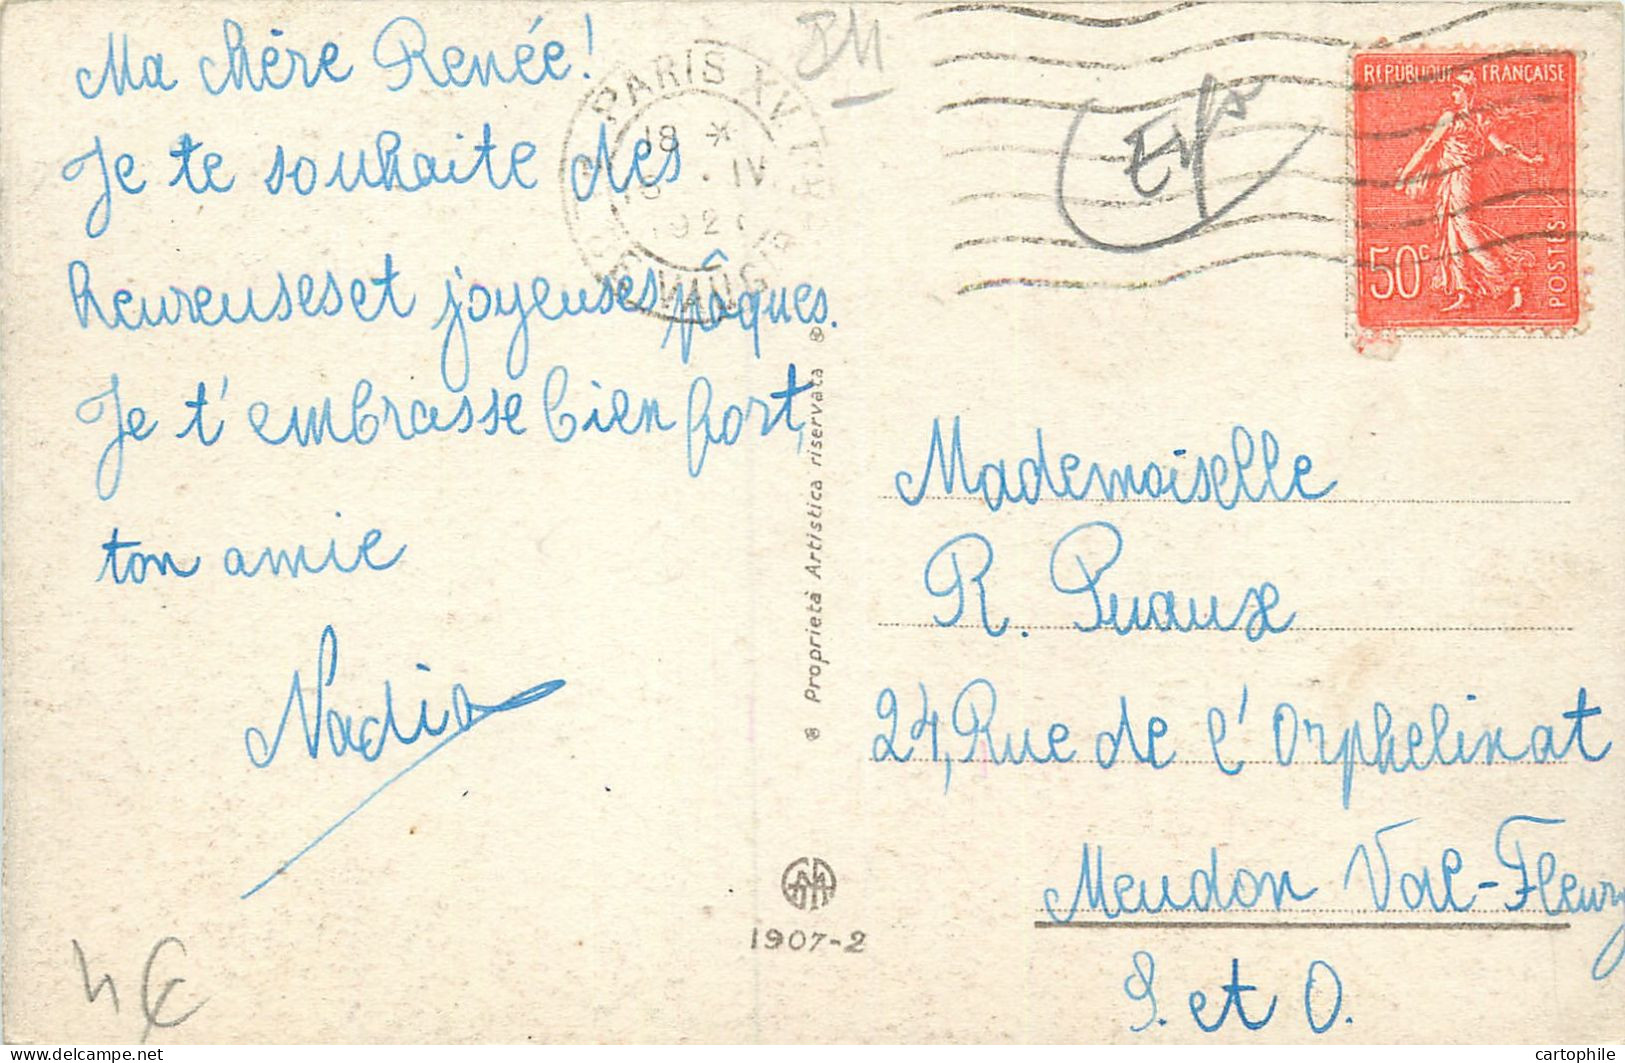 Ma chère Renée!
Je te souhaite des
heureuses et joyeuses pâques.
Je t'embrasse bien fort,
ton amie
Nadia
4€
PARIS XV
18 *
IV
192
VAUGIRARD
REPUBLIQUE FRANÇAISE
50c
POSTES
Proprietà Artistica riservata
1907-2
Mademoiselle
R. Puaux
24, Rue de l'Orphelinat
Meudon Val-Fleury
S. et O.
delcampe.net
cartophile